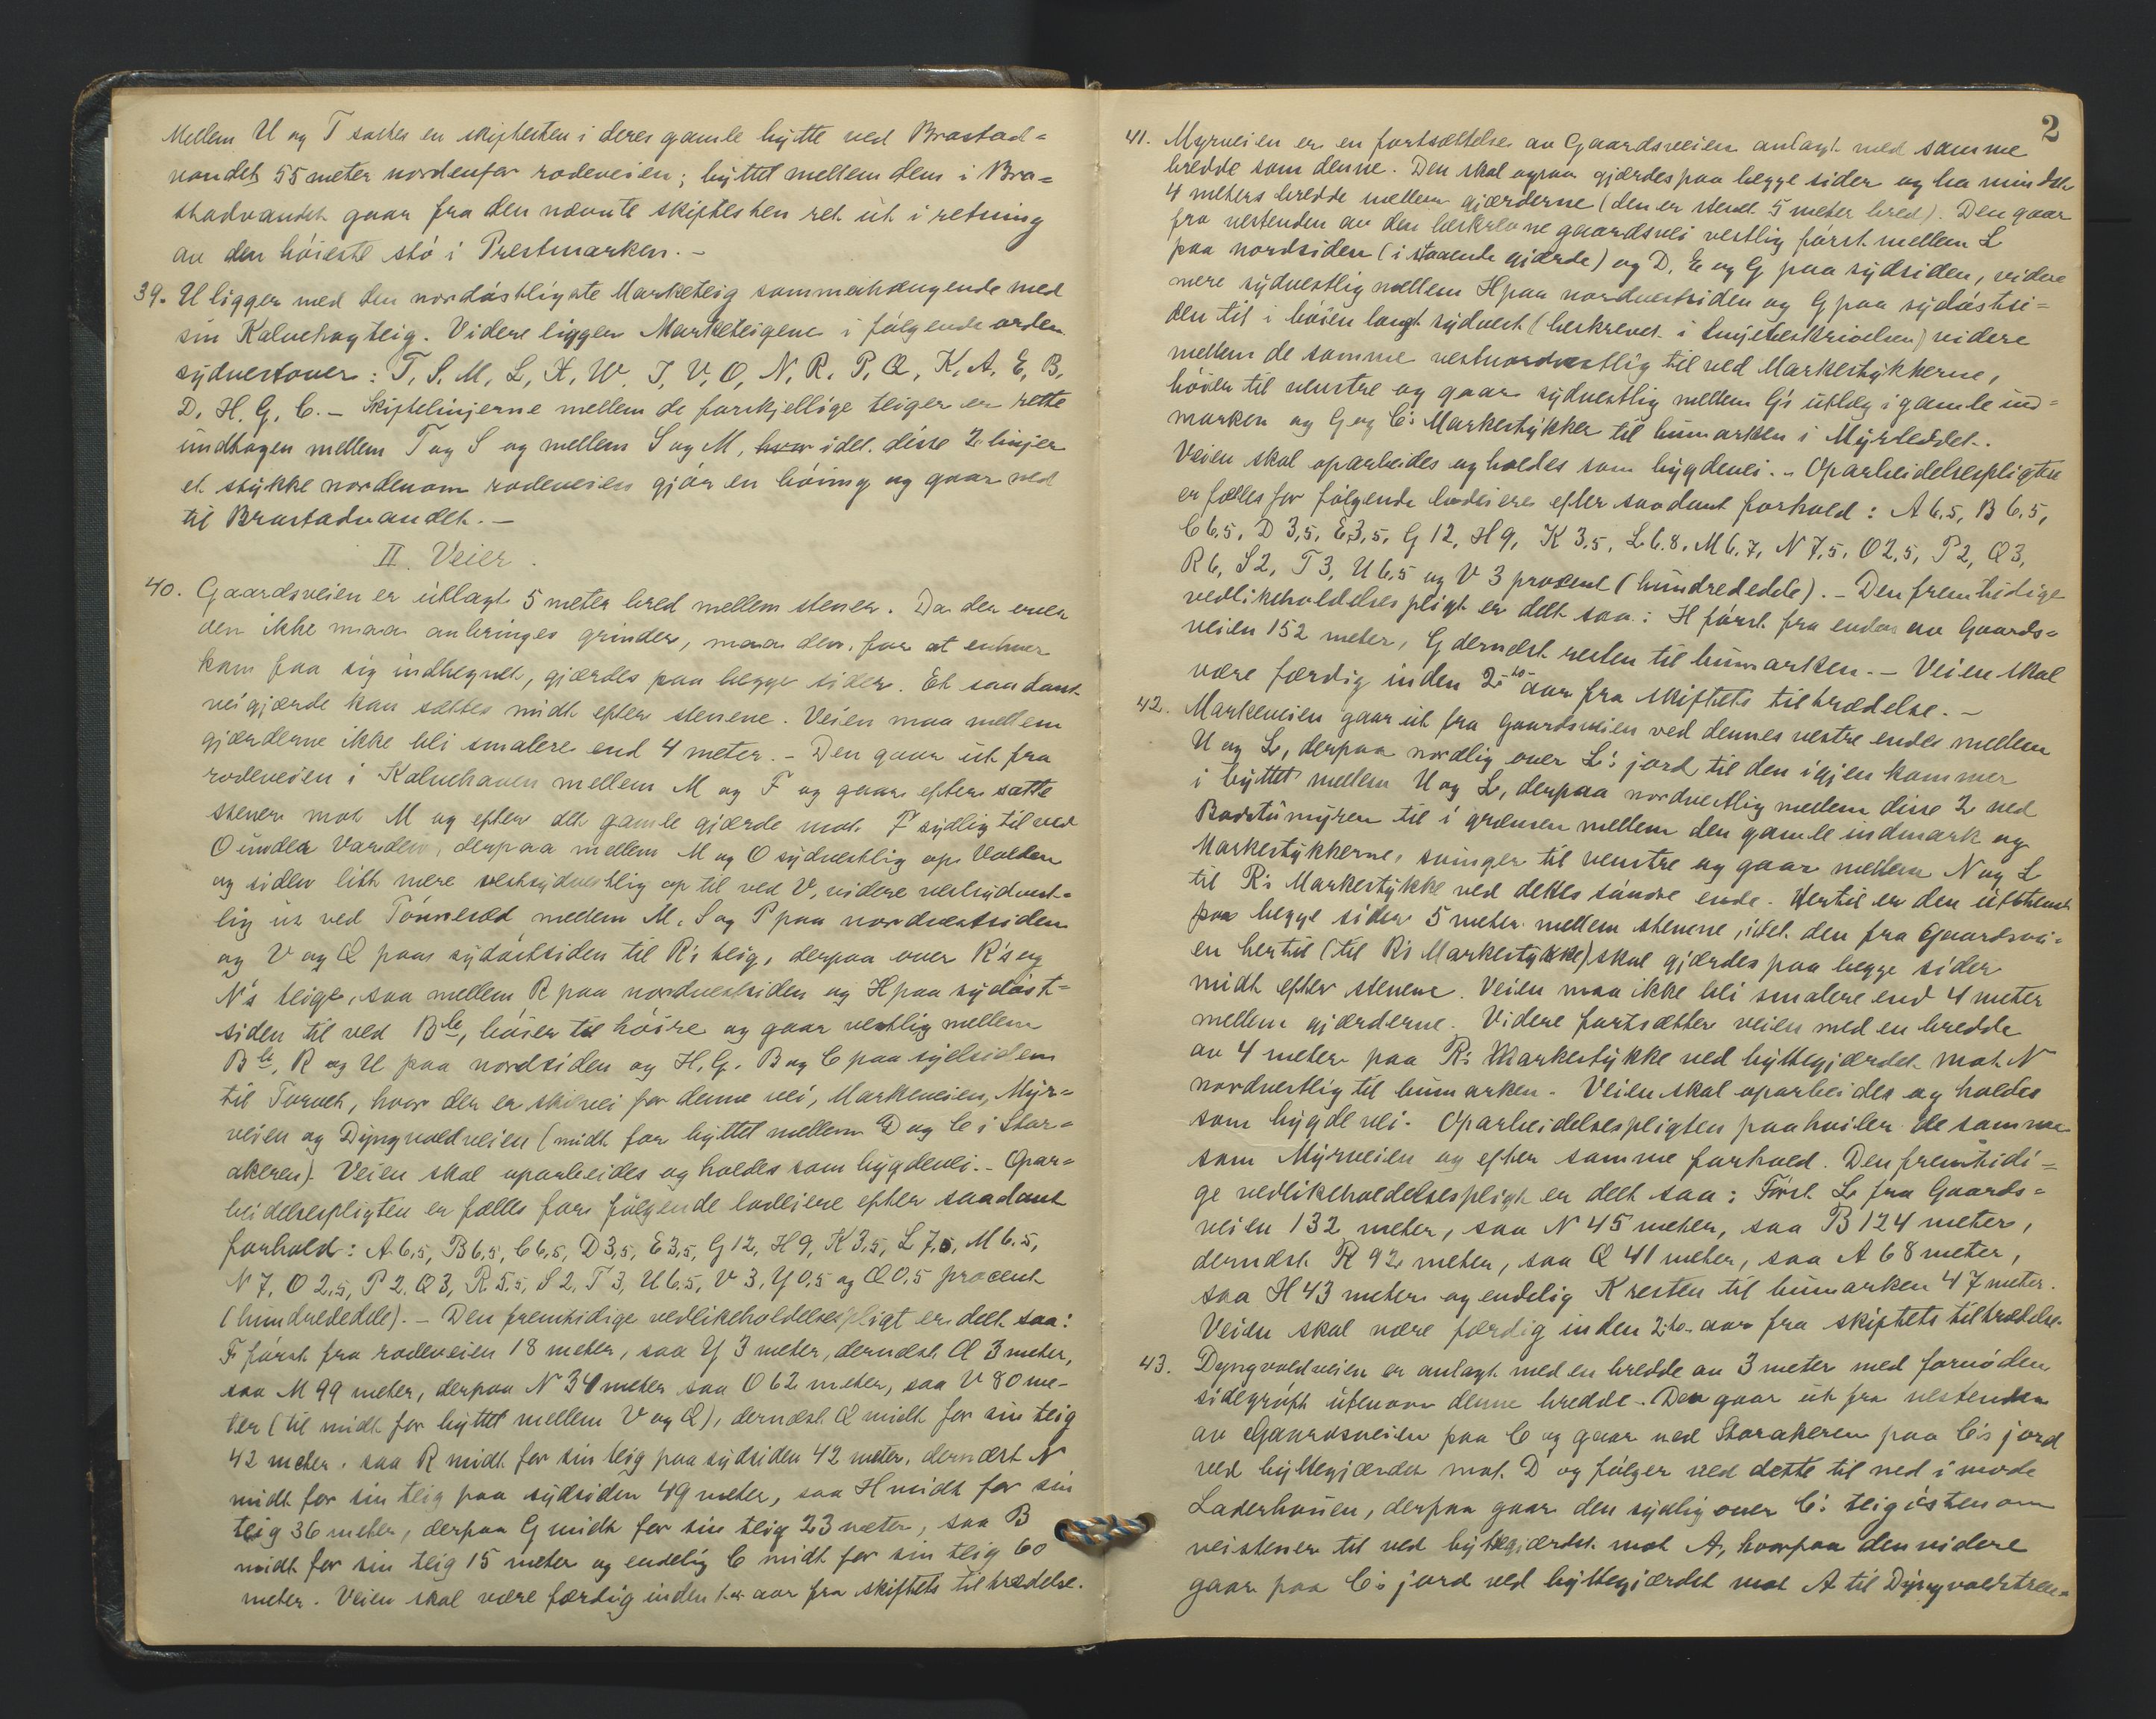 Mellem U og T sættes en skiftesten i deres gamle bytte ved Brastad=
vandet 55 meter nordenfor rodeveien; byttet mellem dem i Bra=
stadvandet gaar fra den nævnte skiftesten ret ut i retning
av den høieste stø i Prestmarken. -
39. U ligger med den nordøstligste Marketeig sammenhængende med
sin Kalvehagteig. Videre ligger Marketeigene i følgende orden
sydvestover: T, S, M, L, X, W, J, V, O, N, R, P, Q, K, A, E, B,
D, H, G, C. - Skiftelinjerne mellem de forskjellige teiger er rette
undtagen mellem T og S og mellem S og M, hvor idet disse 2 linjer
et stykke nordenom rodeveien gjør en bøining og gaar ned
til Brastadvandet. -
II. Veier.
40. Gaardsveien er utlagt 5 meter bred mellem stener. Da der over
den ikke maa anbringes grinder, maa den, for at enhver
kan faa sig indhegnet, gjærdes paa begge sider. Et saadant
veigjærde kan sættes midt efter stenene. Veien maa mellem
gjærderne ikke bli smalere end 4 meter. - Den gaar ut fra
rodeveien i Kalvehagen mellem M og F og gaar efter satte
stener mot M og efter det gamle gjærde mot F sydlig til ved
O under Varden, derpaa mellem M og O sydvestlig op Volden
og siden litt mere vestsydvestlig op til ved V, videre vestsydvest=
lig ut ved Tønnesæd mellem M, S og P paa nordvestsiden
og V og Q paa sydøstsiden til R's teig, derpaa over R's og
N's teige, saa mellem R paa nordvestsiden og H paa sydøst=
siden til ved B le, bøier til høire og gaar vestlig mellem
B le, R og U paa nordsiden og H, G, B og C paa sydsiden
til Torvet, hvor der er skilvei for denne vei, Markeveien, Myr=
veien og Dyngvoldveien (midt for byttet mellem D og C i Stor=
akeren). Veien skal oparbeides og holdes som bygdevei. - Opar=
beidelsespligten er fælles for følgende lodeiere efter saadant
forhold: A 6,5, B 6,5, C 6,5, D 3,5, E 3,5, G 12, H 9, K 3,5, L 7,5, M 6,5,
N 7, O 2,5, P 2, Q 3, R 5,5, S 2, T 3, U 6,5, V 3, Y 0,5 og Æ 0,5 procent
(hundrededele). - Den fremtidige vedlikeholdelsespligt er delt saa:
F først fra rodeveien 18 meter, saa Y 3 meter, dernæst Æ 3 meter,
saa M 99 meter, derpaa N 34 meter saa O 62 meter, saa V 80 me-
ter (til midt for byttet mellem V og Q), dernæst Q midt for sin teig
42 meter, saa R midt for sin teig paa sydsiden 42 meter, dernæst N
midt for sin teig paa sydsiden 49 meter, saa H midt for sin
teig 36 meter, derpaa G midt for sin teig 23 meter, saa B
midt for sin teig 15 meter og endelig C midt for sin teig 60
meter. Veien skal være færdig inden 1 et aar fra skiftets tiltrædelse.
2
41. Myrveien er en fortsættelse av Gaardsveien anlagt med samme
bredde som denne. Den skal ogsaa gjærdes paa begge sider og ha mindst
4 meters bredde mellem gjærderne (den er stenet 5 meter bred). Den gaar
fra vestenden av den beskrevne gaardsvei vestlig først mellem L
paa nordsiden (i staaende gjærde) og D, E og G paa sydsiden, videre
mere sydvestlig mellem H paa nordvestsiden og G paa sydøstsi=
den til i bøien langt sydvest (beskrevet i Linjebeskrivelsen) videre
mellem de samme vestnordvestlig til ved Markestykkerne,
bøier til venstre og gaar sydvestlig mellem G's utlæg i gamle ind=
marken og G og C's Markestykker til bumarken i Myrleddet.
Veien skal oparbeides og holdes som bygdevei. - Oparbeidelsespligten
er fælles for følgende lodeiere efter saadant forhold: A 6,5, B 6,5,
C 6,5, D 3,5, E 3,5, G 12, H 9, K 3,5, L 6,8, M 6,7, N 7,5, O 2,5, P 2, Q 3,
R 6, S 2, T 3, U 6,5 og V 3 procent (hundrededele). - Den fremtidige
vedlikeholdelsespligt er delt saa: H først fra enden av Gaards=
veien 152 meter, G dernæst resten til bumarken. - Veien skal
være færdig inden 2 to aar fra skiftets tiltrædelse. -
42. Markeveien gaar ut fra Gaardsveien ved dennes vestre ende mellem
U og L, derpaa nordlig over L's jord til den igjen kommer
i byttet mellem U og L, derpaa nordvestlig mellem disse 2 ved
Badstumyren til i grænsen mellem den gamle indmark og
Markestykkerne, svinger til venstre og gaar mellem N og L
til R's Markestykke ved dettes søndre ende. Hertil er den utstenet
paa begge sider 5 meter mellem stenene, idet den fra Gaardsvei=
en hertil (til R's Markestykke) skal gjærdes paa begge sider
midt efter stenene. Veien maa ikke bli smalere end 4 meter
mellem gjærderne. Videre fortsætter veien med en bredde
av 4 meter paa R's Markestykke ved byttegjærdet mot N
nordvestlig til bumarken. - Veien skal oparbeides og holdes
som bygdevei. Oparbeidelsespligten paahviler de samme
som Myrveien og efter samme forhold. Den fremtidi=
ge vedlikeholdelsespligt er delt saa: Først L fra Gaards=
veien 132 meter, saa N 45 meter, saa B 124 meter,
dernæst R 92 meter, saa Q 41 meter, saa A 68 meter,
saa H 43 meter og endelig K resten til bumarken 47 meter.
Veien skal være færdig inden 2 to aar fra skiftets tiltrædelse.
43. Dyngvoldveien er anlagt med en bredde av 3 meter med fornøden
sidegrøft utenom denne bredde. Den gaar ut fra vestenden
av Gaardsveien paa C og gaar ned Storakeren paa C's jord
ved byttegjærdet mot D og følger ved dette til ned i mode
Laderhaugen, derpaa gaar den sydlig over C's teig østenom
veistener til ved byttegjærdet mot A, hvorpaa den videre
gaar paa C's jord ved byttegjærdet mot A til Dyngvoldstræ=